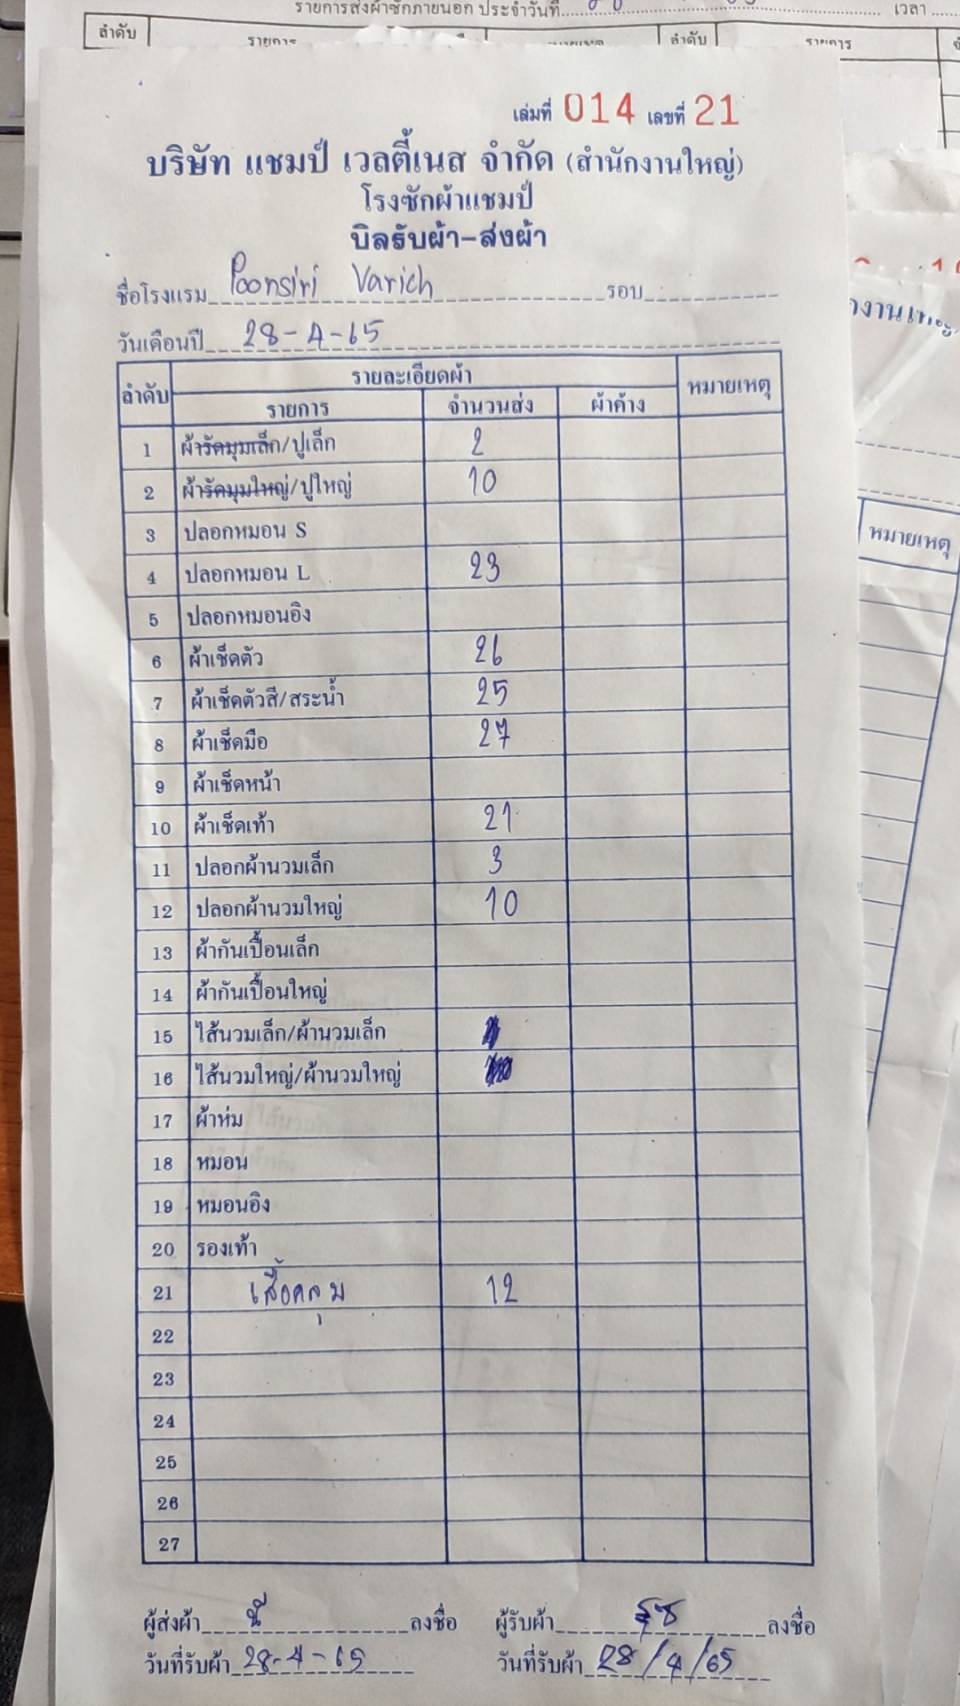 รายการส่งผ้าซักภายนอก ประจำวันที่ เวลา
ลำดับ รายการ หมายเหตุ ลำดับ รายการ
เล่มที่ 014 เลขที่ 21
บริษัท แชมป์ เวลตี้เนส จำกัด (สำนักงานใหญ่)
โรงซักผ้าแชมป์
บิลรับผ้า-ส่งผ้า
ชื่อโรงแรม Poonsiri Varich รอบ
วันเดือนปี 28-4-65
ลำดับ รายละเอียดผ้า หมายเหตุ
รายการ จำนวนส่ง ผ้าค้าง
1 ผ้ารัดมุมเล็ก/ปูเล็ก 2
2 ผ้ารัดมุมใหญ่/ปูใหญ่ 10
3 ปลอกหมอน S
4 ปลอกหมอน L 23
5 ปลอกหมอนอิง
6 ผ้าเช็ดตัว 26
7 ผ้าเช็ดตัวสี/สระน้ำ 25
8 ผ้าเช็ดมือ 27
9 ผ้าเช็ดหน้า
10 ผ้าเช็ดเท้า 21
11 ปลอกผ้านวมเล็ก 3
12 ปลอกผ้านวมใหญ่ 10
13 ผ้ากันเปื้อนเล็ก
14 ผ้ากันเปื้อนใหญ่
15 ไส้นวมเล็ก/ผ้านวมเล็ก
16 ไส้นวมใหญ่/ผ้านวมใหญ่
17 ผ้าห่ม
18 หมอน
19 หมอนอิง
20 รองเท้า
21 เสื้อคลุม 12
22
23
24
25
26
27
หมายเหตุ
ผู้ส่งผ้า ลงชื่อ ผู้รับผ้า ลงชื่อ
วันที่รับผ้า 28-4-65 วันที่รับผ้า 28/4/65